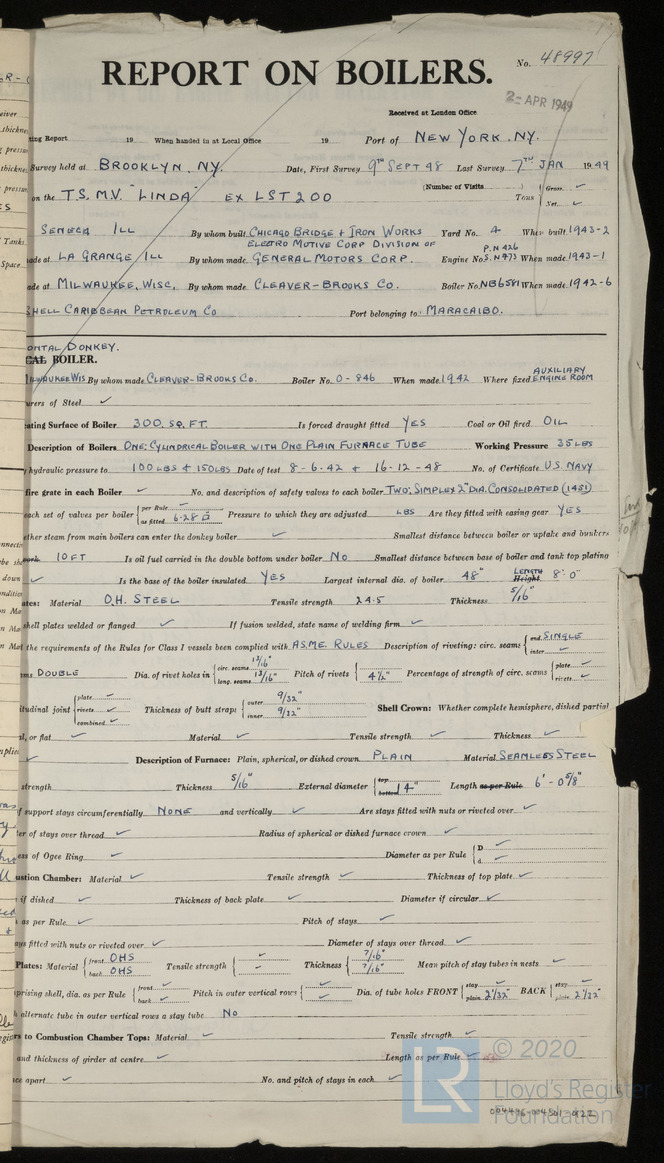 No. 48997
REPORT ON BOILERS.
Received at London Office
2- APR 1949
ting Report 19 When handed in at Local Office 19 Port of NEW YORK. NY.
Survey held at BROOKLYN. NY. Date, First Survey 9TH SEPT 48 Last Survey 7TH JAN 1949
(Number of Visits )
on the T.S.M.V. "LINDA" EX LST 200 Tons { Gross. Net.
SENECA ILL By whom built CHICAGO BRIDGE & IRON WORKS Yard No. 4 When built 1943-2
ade at LA GRANGE ILL By whom made ELECTRO MOTIVE CORP DIVISION OF GENERAL MOTORS CORP. Engine No. P.N 426 S.N 473 When made 1943-1
ade at MILWAUKEE, WISC. By whom made CLEAVER-BROOKS CO. Boiler No. NB6581 When made 1942-6
SHELL CARIBBEAN PETROLEUM CO Port belonging to MARACAIBO.
ONTAL DONKEY.
CAL BOILER.
MILWAUKEE WIS By whom made CLEAVER-BROOKS CO. Boiler No. 0-846 When made 1942 Where fixed AUXILIARY ENGINE ROOM
urers of Steel ✓
ating Surface of Boiler 300. SQ. FT. Is forced draught fitted YES Coal or Oil fired OIL
Description of Boilers ONE: CYLINDRICAL BOILER WITH ONE PLAIN FURNACE TUBE Working Pressure 35 LBS
hydraulic pressure to 100 LBS & 150 LBS Date of test 8-6-42 & 16-12-48 No. of Certificate U.S. NAVY
fire grate in each Boiler ✓ No. and description of safety valves to each boiler TWO: SIMPLEX 2" DIA. CONSOLIDATED (1481)
each set of valves per boiler { per Rule ✓ as fitted 6-28 □" Pressure to which they are adjusted LBS Are they fitted with easing gear YES
ether steam from main boilers can enter the donkey boiler ✓ Smallest distance between boiler or uptake and bunkers
10 FT Is oil fuel carried in the double bottom under boiler NO Smallest distance between base of boiler and tank top plating
✓ Is the base of the boiler insulated YES Largest internal dia. of boiler 48" LENGTH Height 8'-0"
ates: Material O.H. STEEL Tensile strength 24.5 Thickness 5/16"
shell plates welded or flanged ✓ If fusion welded, state name of welding firm ✓
the requirements of the Rules for Class I vessels been complied with A.S.M.E. RULES Description of riveting: circ. seams { end SINGLE inter ✓
ms DOUBLE Dia. of rivet holes in { circ. seams 13/16" long. seams 13/16" Pitch of rivets { 4½" Percentage of strength of circ. seams { plate ✓ rivets ✓
itudinal joint { plate ✓ rivets ✓ combined ✓ Thickness of butt straps { outer 9/32" inner 9/32" Shell Crown: Whether complete hemisphere, dished partial
al, or flat ✓ Material ✓ Tensile strength ✓ Thickness ✓
✓ Description of Furnace: Plain, spherical, or dished crown PLAIN Material SEAMLESS STEEL
strength Thickness 5/16" External diameter { top bottom 14" Length as per Rule 6'-0 5/8"
f support stays circumferentially NONE and vertically ✓ Are stays fitted with nuts or riveted over ✓
ter of stays over thread ✓ Radius of spherical or dished furnace crown ✓
ess of Ogee Ring ✓ Diameter as per Rule { D ✓ d ✓
ustion Chamber: Material ✓ Tensile strength ✓ Thickness of top plate ✓
if dished ✓ Thickness of back plate ✓ Diameter if circular ✓
as per Rule ✓ Pitch of stays ✓
ays fitted with nuts or riveted over ✓ Diameter of stays over thread ✓
Plates: Material { front OHS back OHS Tensile strength { ✓ ✓ Thickness { 7/16" 7/16" Mean pitch of stay tubes in nests ✓
prising shell, dia. as per Rule { front ✓ back ✓ Pitch in outer vertical rows { ✓ ✓ Dia. of tube holes FRONT { stay ✓ plain 2 1/32" BACK { stay ✓ plain 2 1/32"
h alternate tube in outer vertical rows a stay tube NO
rs to Combustion Chamber Tops: Material ✓ Tensile strength ✓
and thickness of girder at centre ✓ Length as per Rule ✓
ce apart ✓ No. and pitch of stays in each ✓
© 2020
LR Lloyd's Register
Foundation
004496-004501-0122